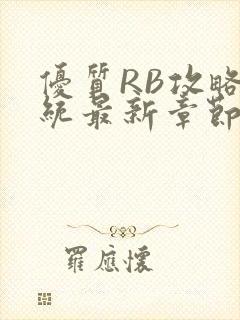 優質RB攻略
統最新章節
羅應懷